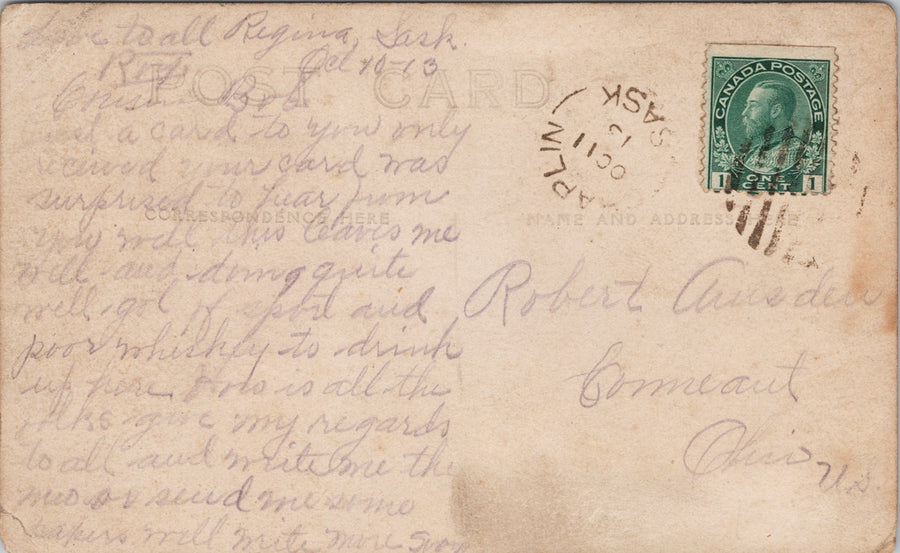 Love to all Regina, Sask.
Roy. Oct 10-13
POST CARD
Cousin Bob
just a card to you only
received your card was
surprised to hear from
CORRESPONDENCE HERE
you well this leaves me
well and doing quite
well, got of sport and
poor whiskey to drink
up here. How is all the
folks give my regards
to all and write me the
or send me some
papers well write more soon
CANADA POSTAGE
1 ONE CENT 1
APLIN
OC 11
13
SASK
NAME AND ADDRESS HERE
Robert Amsden
Conneaut
Ohio
U.S.